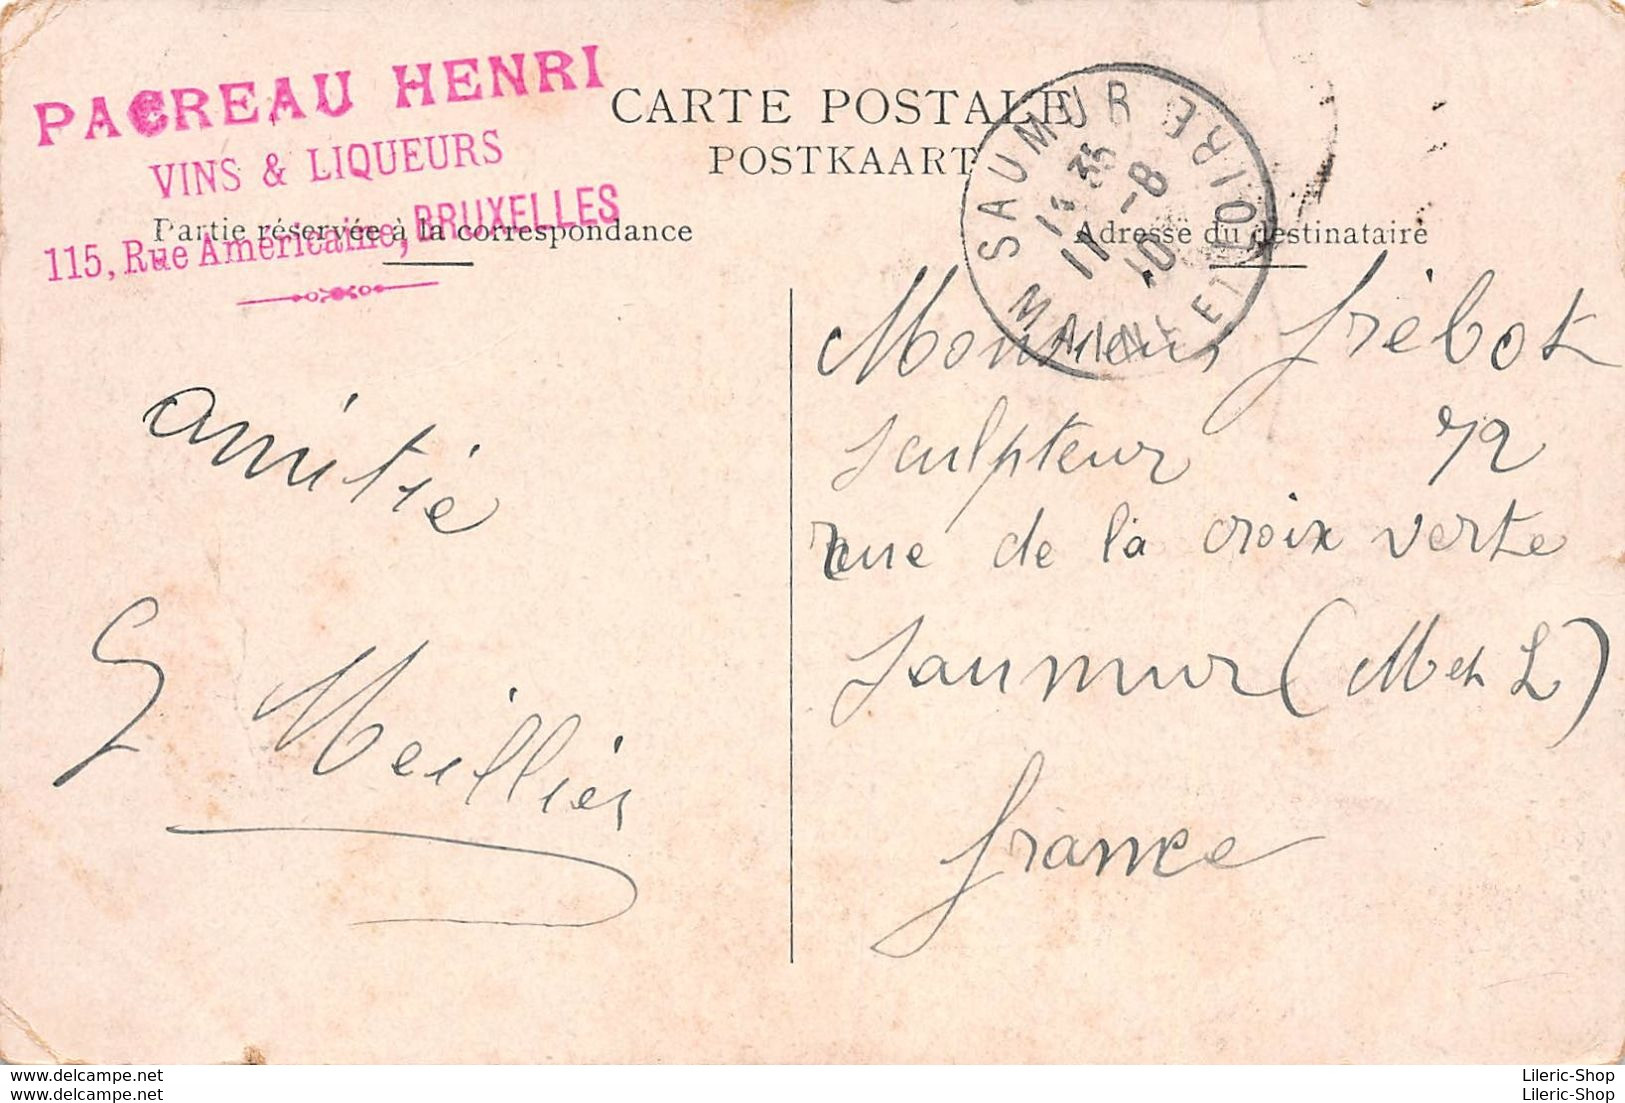 PACREAU HENRI
VINS & LIQUEURS
115, Rue Américaine, BRUXELLES
CARTE POSTALE
POSTKAART
Partie réservée à la correspondance
Adresse du destinataire
SAUMUR
MAINE ET LOIRE
35
11 -8
10
amitié
G Meillier
Monsieur frébot
sculpteur 72
rue de la croix verte
Saumur (M et L)
france
www.delcampe.net
www.delcampe.net
Lileric-Shop
Lileric-Shop